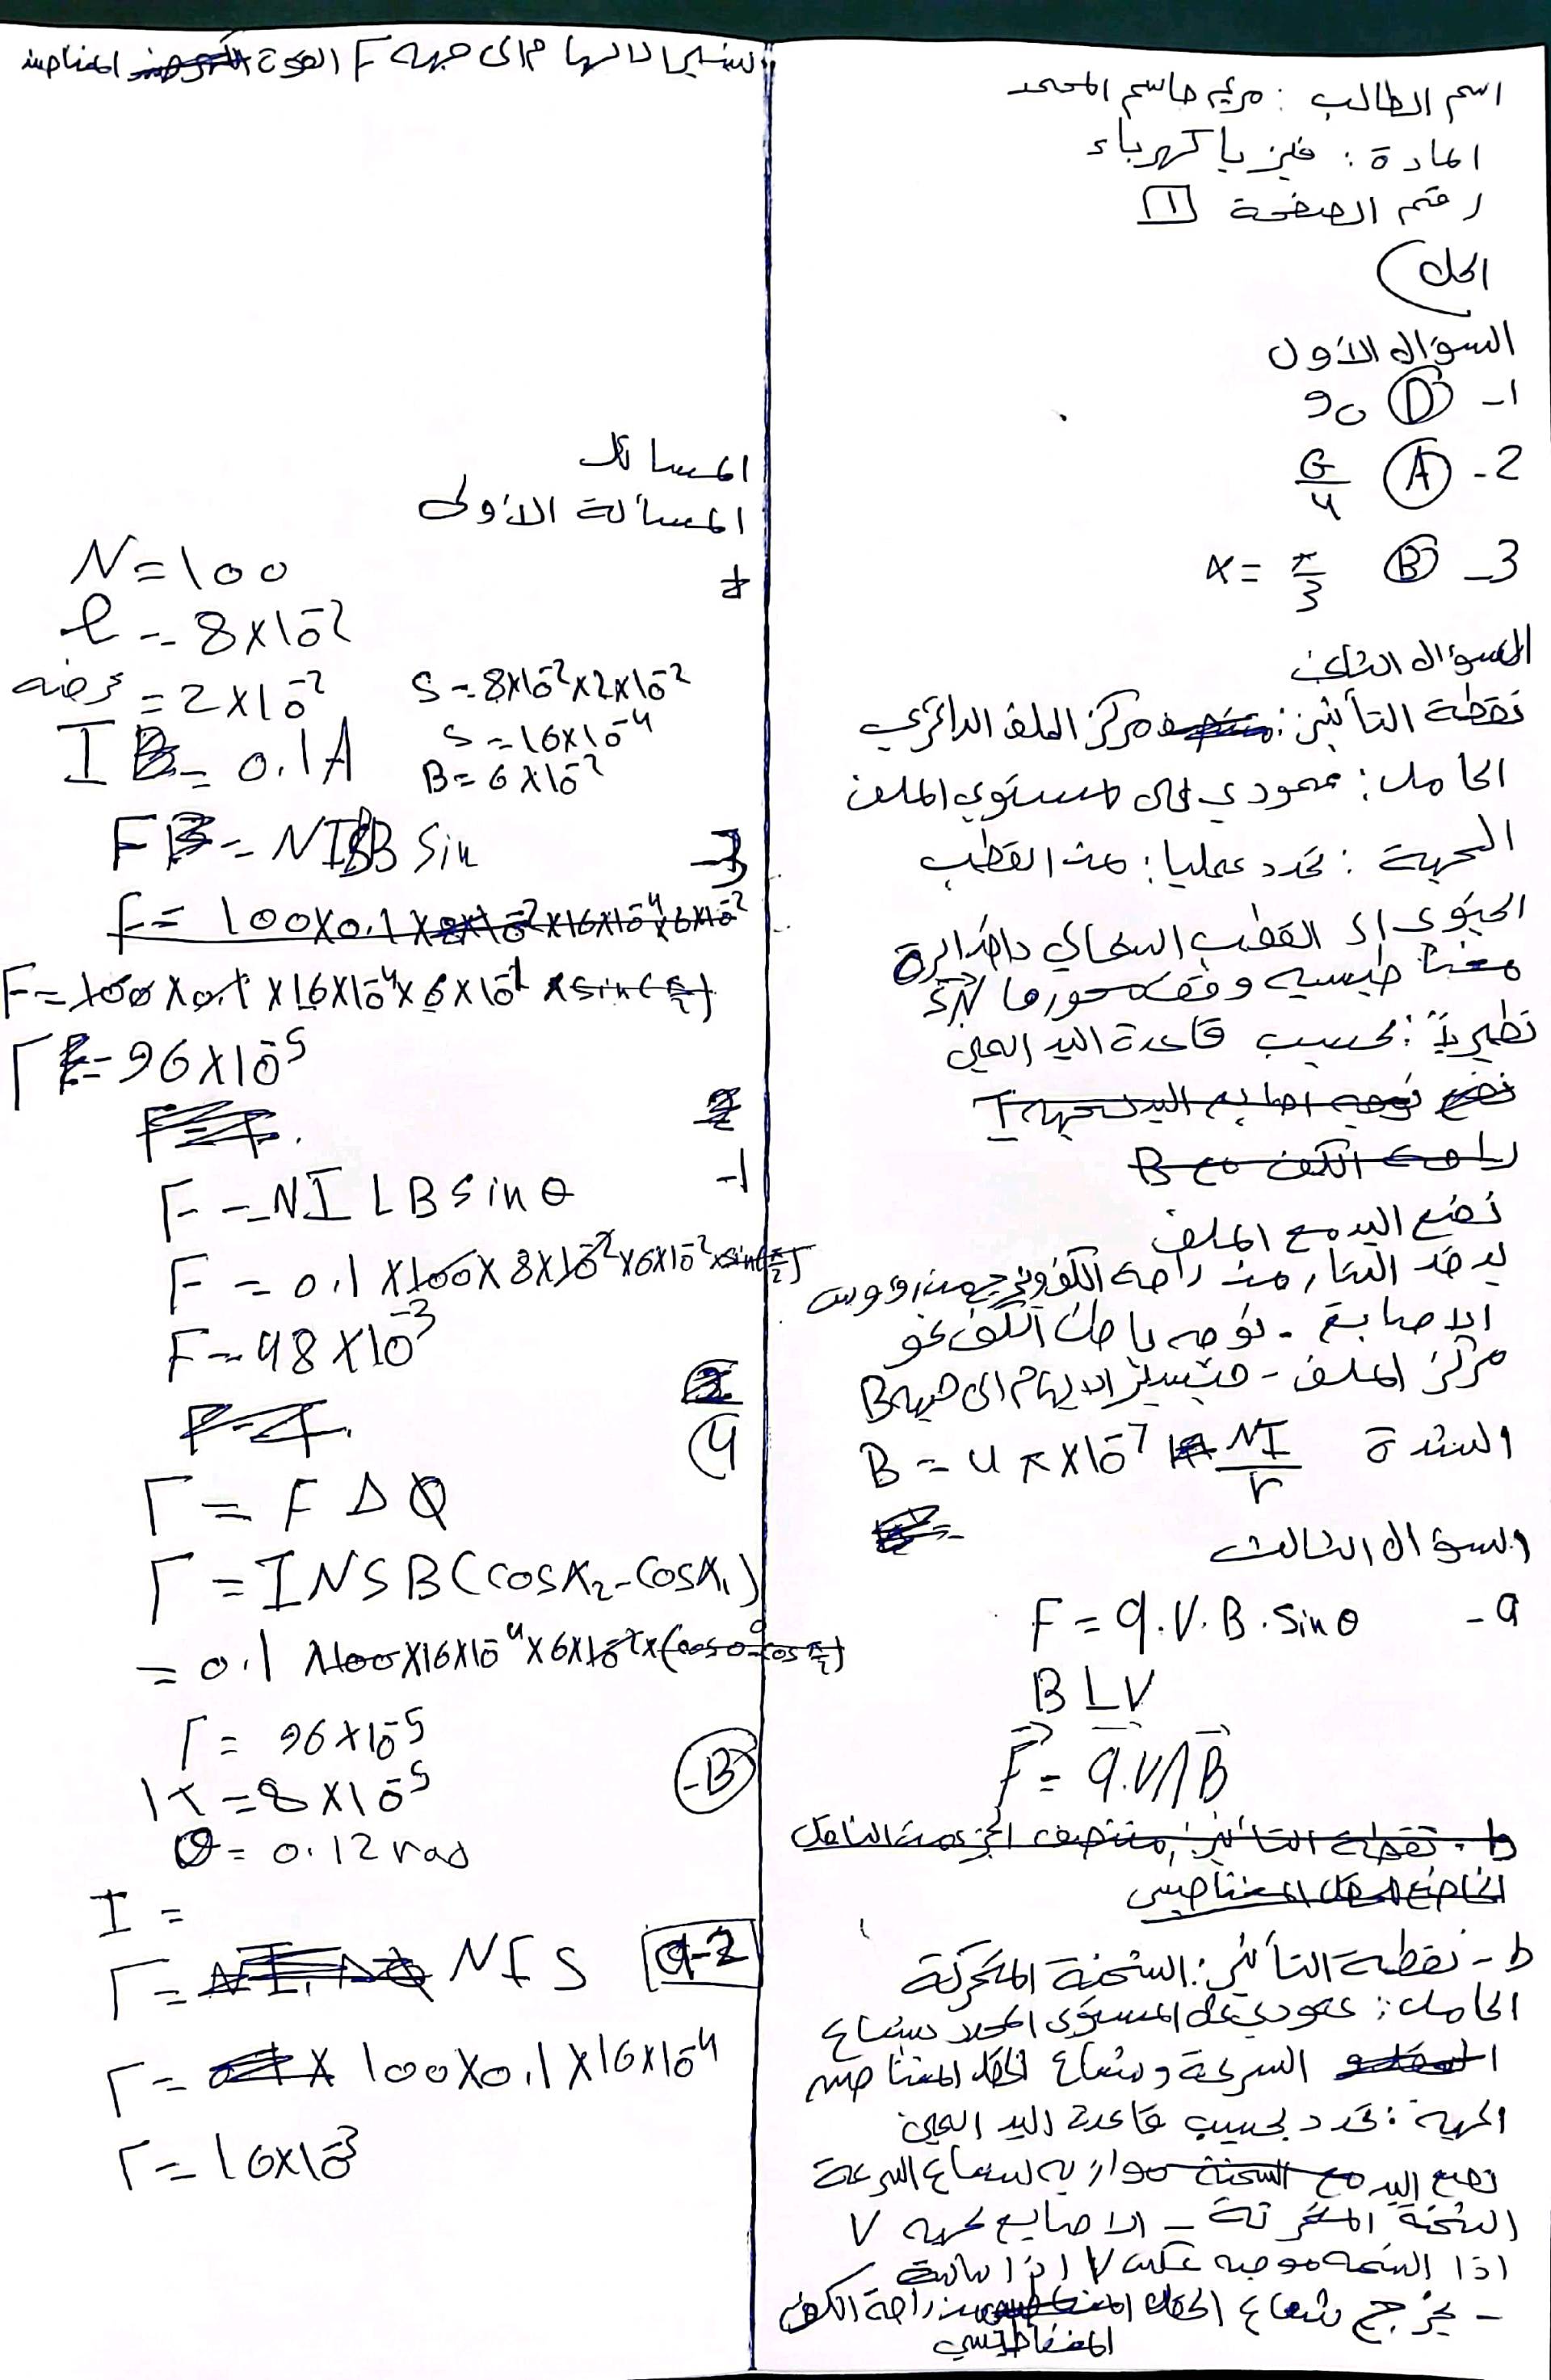 اسم الطالب : مريم جاسم المحمد
المادة : فيزياء كهرباء
رقم الصفحة 1
الحل
السؤال الأول
1- D 90
2- A G/4
3- B α = π/3
السؤال الثاني
نقطة التأثير : مركز الملف الدائري
الحامل : عمودي على مستوي الملف
الجهة : تحدد عمليا : من القطب
الجنوبي إلى القطب الشمالي داخل ابرة
مغناطيسية وفق محورها SN
نظرياً : بحسب قاعدة اليد اليمنى
نضع اليد مع الملف
يدخل التيار من راحة الكف ويخرج من رؤوس
الاصابع - نوجه باطن الكف نحو
مركز الملف - فيشير الابهام الى جهة B
الشدة B = 4π×10^-7 NI/r
السؤال الثالث
a- F = q.V.B.sinθ
B⊥V
F = q.V∧B
b - نقطة التأثير : الشحنة المتحركة
الحامل : عمودي على المستوي المحدد بشعاع
السرعة وشعاع الحقل المغناطيسي
الجهة : تحدد بحسب قاعدة اليد اليمنى
نضع اليد موازية لشعاع السرعة
الشحنة المتحركة - الاصابع بجهة V
اذا الشحنة موجبة عكس V اذا سالبة
- يخرج شعاع الحقل من راحة الكف
المغناطيسي
يشير الابهام الى جهة F القوة المغناطيسية
المسائل
المسألة الأولى
N = 100
l = 8×10^-2
عرضه = 2×10^-2 S = 8×10^-2×2×10^-2
I = 0.1A S = 16×10^-4
B = 6×10^-2
3- F = NISB sin
F = 100×0.1×16×10^-4×6×10^-2×sin(π/2)
Γ = 96×10^-5
1- F = NILB sinθ
F = 0.1×100×8×10^-2×6×10^-2×sin(π/2)
F = 48×10^-3
4
Γ = F ΔΦ
Γ = INSB(cosα2-cosα1)
= 0.1×100×16×10^-4×6×10^-2×(cos0-cosπ/2)
Γ = 96×10^-5
B- K = 8×10^-5
θ = 0.12 rad
I =
a-2 Γ = NIS
Γ = 100×0.1×16×10^-4
Γ = 16×10^-3